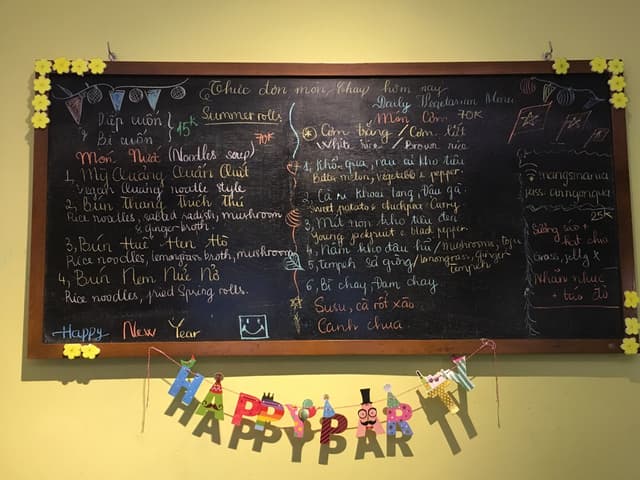 Thực đơn món chay hôm nay
Daily Vegetarian Menu
Diếp cuốn
Bì cuốn
15k
Summer rolls
Món Nước (Noodles soup)
70k
1, Mỳ Quảng Quấn Quít
Vegan Quang noodle style
2, Bún Thang Thích Thú
Rice noodles, salted radish, mushroom
& ginger broth.
3, Bún Huế Hẹn Hò
Rice noodles, lemongrass broth, mushroom
4, Bún Nem Nu Nơ
Rice noodles, fried Spring rolls.
Happy New Year
Món Cơm 70K
Cơm trắng / Cơm lứt
White rice / Brown rice
1, Khổ qua, rau củ kho tiêu
Bitter melon, vegetable & pepper
2, Cà ri khoai lang, Đậu gà
Sweet potato & chickpea Curry
3, Mít non kho tiêu đen
Young jackfruit & black pepper
4, Nấm kho đậu hũ / mushrooms, tofu
5, Tempeh sả gừng / lemongrass, ginger
tempeh
6, Bì chay, Đạm chay
Susu, cà rốt xào
Canh chua.
25k
Sương sáo +
hạt chia
Grass jelly &
Nhãn nhục
+ táo đỏ
HAPPY PARTY